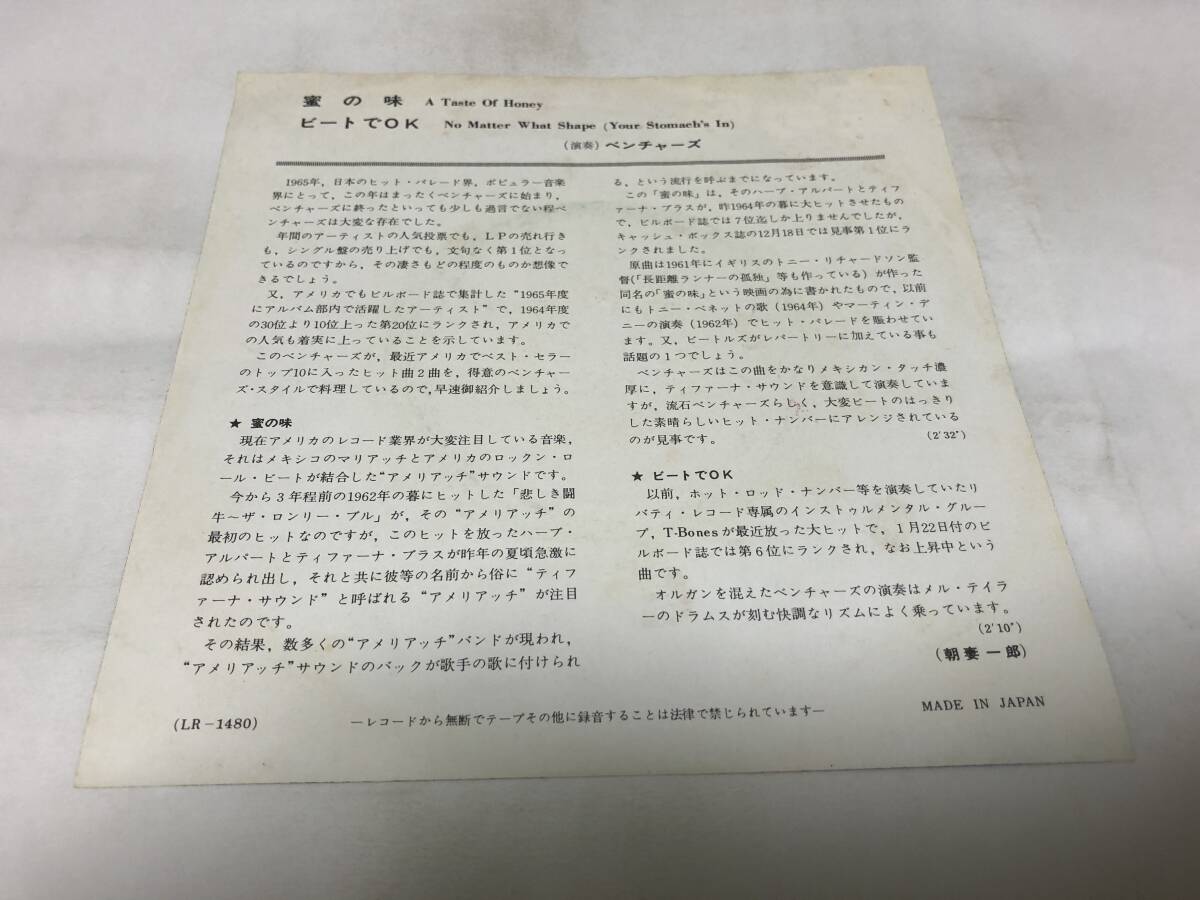 蜜の味 A Taste Of Honey
ビートでOK No Matter What Shape (Your Stomach's In)
(演奏) ベンチャーズ
1965年，日本のヒット・パレード界，ポピュラー音楽
界にとって，この年はまったくベンチャーズに始まり，
ベンチャーズに終ったといっても少しも過言でない程ベ
ンチャーズは大変な存在でした。
年間のアーティストの人気投票でも，ＬＰの売れ行き
も，シングル盤の売り上げでも，文句なく第１位となっ
ているのですから，その凄さもどの程度のものか想像で
きるでしょう。
又，アメリカでもビルボード誌で集計した“1965年度
にアルバム部内で活躍したアーティスト”で，1964年度
の30位より10位上った第20位にランクされ，アメリカで
の人気も着実に上っていることを示しています。
このベンチャーズが，最近アメリカでベスト・セラー
のトップ10に入ったヒット曲２曲を，得意のベンチャー
ズ・スタイルで料理しているので，早速御紹介しましょう。
★ 蜜の味
現在アメリカのレコード業界が大変注目している音楽，
それはメキシコのマリアッチとアメリカのロックン・ロ
ール・ビートが結合した“アメリアッチ”サウンドです。
今から３年程前の1962年の暮にヒットした「悲しき闘
牛〜ザ・ロンリー・ブル」が，その“アメリアッチ”の
最初のヒットなのですが，このヒットを放ったハーブ・
アルバートとティファーナ・ブラスが昨年の夏頃急激に
認められ出し，それと共に彼等の名前から俗に“ティフ
ァーナ・サウンド”と呼ばれる“アメリアッチ”が注目
されたのです。
その結果，数多くの“アメリアッチ”バンドが現われ，
“アメリアッチ”サウンドのバックが歌手の歌に付けられ
る，という流行を呼ぶまでになっています。
この「蜜の味」は，そのハーブ・アルパートとティフ
ァーナ・ブラスが，昨1964年の暮に大ヒットさせたもの
で，ビルボード誌では７位迄しか上りませんでしたが，
キャッシュ・ボックス誌の12月18日では見事第１位にラ
ンクされました。
原曲は1961年にイギリスのトニー・リチャードソン監
督(「長距離ランナーの孤独」等も作っている）が作った
同名の「蜜の味」という映画の為に書かれたもので，以前
にもトニー・ベネットの歌（1964年）やマーティン・デ
ニーの演奏（1962年）でヒット・パレードを賑わせてい
ます。又，ビートルズがレパートリーに加えている事も
話題の１つでしょう。
ベンチャーズはこの曲をかなりメキシカン・タッチ濃
厚に，ティファーナ・サウンドを意識して演奏していま
すが，流石ベンチャーズらしく，大変ビートのはっきり
した素晴らしいヒット・ナンバーにアレンジされている
のが見事です。 (2′32″)
★ ビートでOK
以前，ホット・ロッド・ナンバー等を演奏していたリ
バティ・レコード専属のインストゥルメンタル・グルー
プ，T-Bonesが最近放った大ヒットで，１月22日付のビ
ルボード誌では第６位にランクされ，なお上昇中という
曲です。
オルガンを混えたベンチャーズの演奏はメル・テイラ
ーのドラムスが刻む快調なリズムによく乗っています。
(2′10″)
(朝妻一郎)
(LR-1480)
―レコードから無断でテープその他に録音することは法律で禁じられています―
MADE IN JAPAN